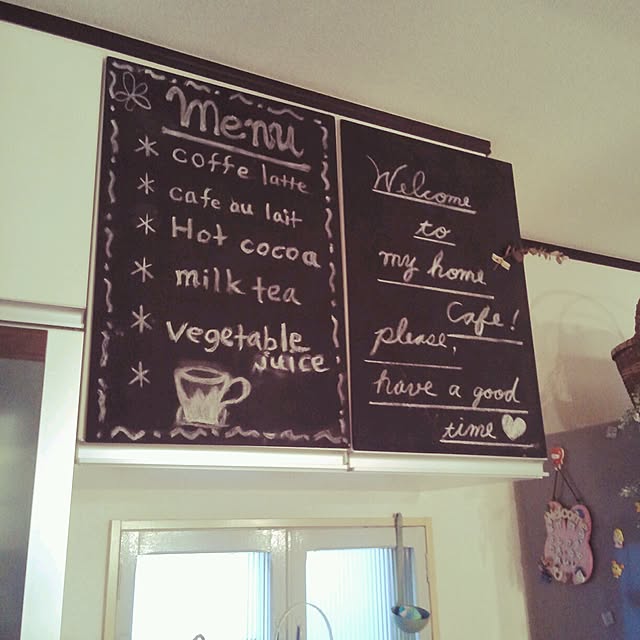 Menu
coffe latte
cafe au lait
Hot cocoa
milk tea
vegetable
juice
Welcome
to
my home
Cafe!
please,
have a good
time